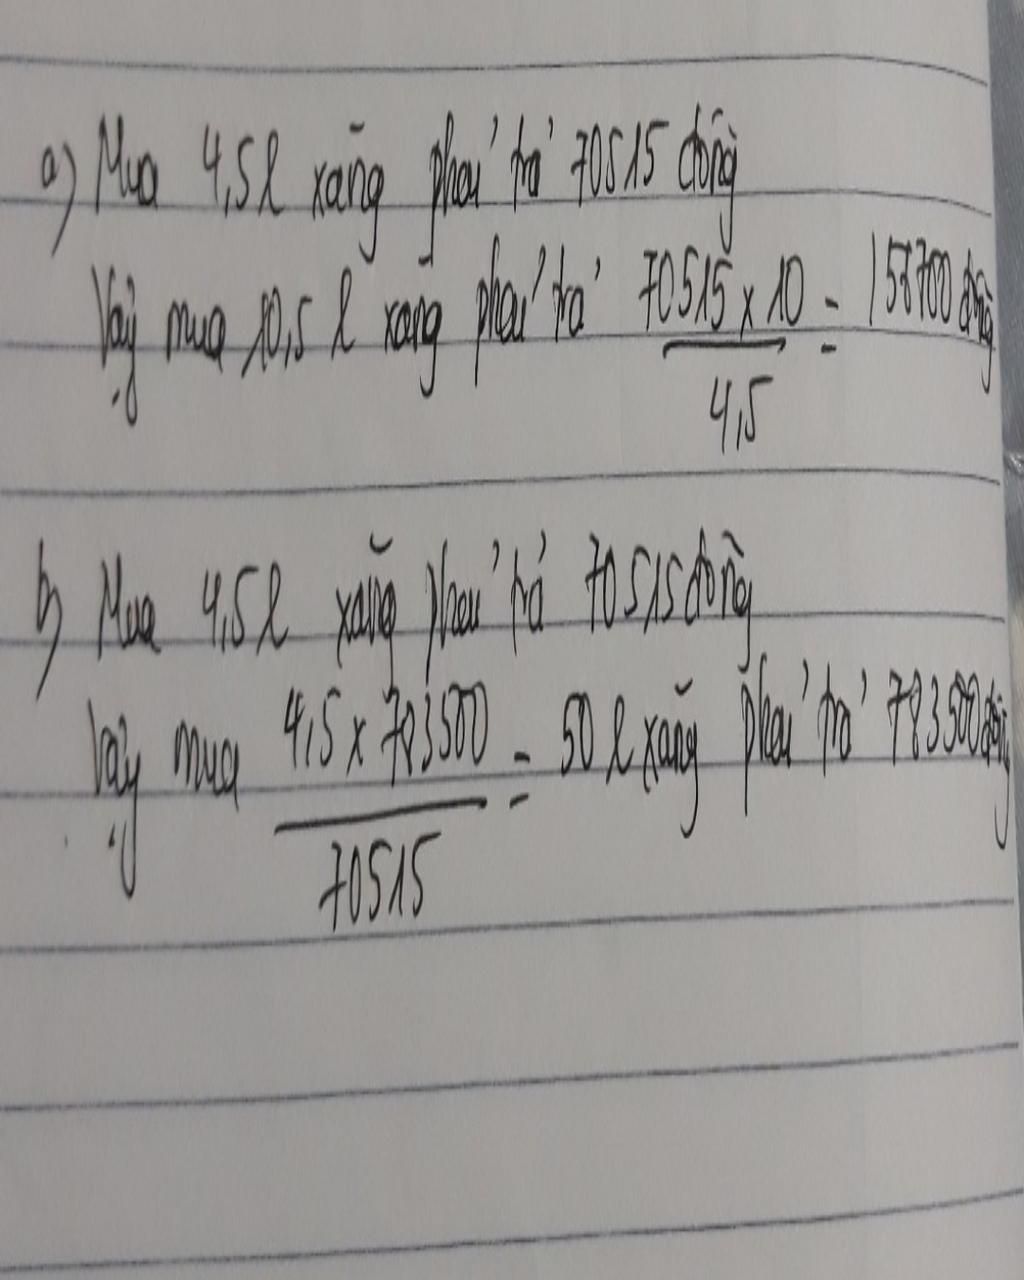 a) Mua 4,5l xăng phải trả 70515 đồng
Vậy mua 10,5 l xăng phải trả 70515 x 10 = 156700 đồng
4,5
b) Mua 4,5l xăng phải trả 70515 đồng
Vậy mua 4,5 x 783500 = 50 l xăng phải trả 783500 đồng
70515